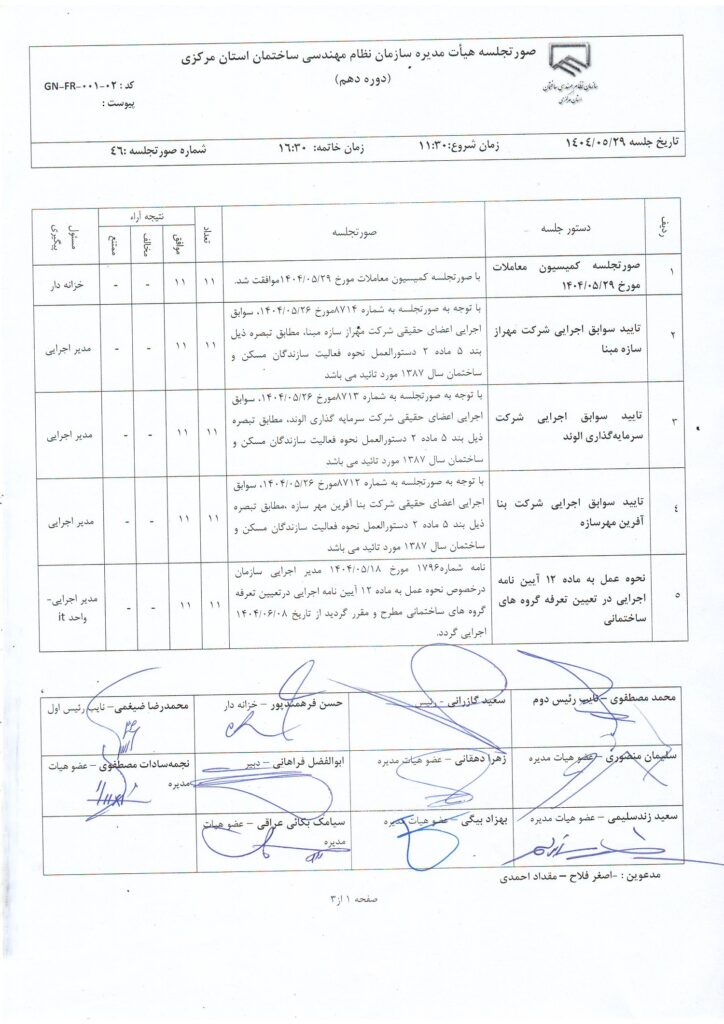 سازمان نظام مهندسی ساختمان
استان مرکزی
صورتجلسه هیأت مدیره سازمان نظام مهندسی ساختمان استان مرکزی
(دوره دهم)
کد : GN-FR-۰۰۱-۰۲
پیوست :
تاریخ جلسه ۱۴۰۴/۰۵/۲۹ زمان شروع:۱۱:۳۰ زمان خاتمه: ۱۶:۳۰ شماره صورتجلسه :۴۶
ردیف دستور جلسه صورتجلسه تعداد نتیجه آراء مسئول پیگیری
موافق مخالف ممتنع
۱
صورتجلسه کمیسیون معاملات
مورخ ۱۴۰۴/۰۵/۲۹
با صورتجلسه کمیسیون معاملات مورخ ۱۴۰۴/۰۵/۲۹موافقت شد.
۱۱ ۱۱ - - خزانه دار
۲
تایید سوابق اجرایی شرکت مهراز
سازه مبنا
با توجه به صورتجلسه به شماره ۸۷۱۴مورخ ۱۴۰۴/۰۵/۲۶، سوابق
اجرایی اعضای حقیقی شرکت مهراز سازه مبنا، مطابق تبصره ذیل
بند ۵ ماده ۲ دستورالعمل نحوه فعالیت سازندگان مسکن و
ساختمان سال ۱۳۸۷ مورد تائید می باشد
۱۱ ۱۱ - - مدیر اجرایی
۳
تایید سوابق اجرایی شرکت
سرمایه‌گذاری الوند
با توجه به صورتجلسه به شماره ۸۷۱۳مورخ ۱۴۰۴/۰۵/۲۶، سوابق
اجرایی اعضای حقیقی شرکت سرمایه گذاری الوند، مطابق تبصره
ذیل بند ۵ ماده ۲ دستورالعمل نحوه فعالیت سازندگان مسکن و
ساختمان سال ۱۳۸۷ مورد تائید می باشد
۱۱ ۱۱ - - مدیر اجرایی
۴
تایید سوابق اجرایی شرکت بنا
آفرین مهرسازه
با توجه به صورتجلسه به شماره ۸۷۱۲مورخ ۱۴۰۴/۰۵/۲۶، سوابق
اجرایی اعضای حقیقی شرکت بنا آفرین مهر سازه ،مطابق تبصره
ذیل بند ۵ ماده ۲ دستورالعمل نحوه فعالیت سازندگان مسکن و
ساختمان سال ۱۳۸۷ مورد تائید می باشد
۱۱ ۱۱ - - مدیر اجرایی
۵
نحوه عمل به ماده ۱۲ آیین نامه
اجرایی در تعیین تعرفه گروه های
ساختمانی
نامه شماره۱۷۹۶ مورخ ۱۴۰۴/۰۵/۱۸ مدیر اجرایی سازمان
درخصوص نحوه عمل به ماده ۱۲ آیین نامه اجرایی درتعیین تعرفه
گروه های ساختمانی مطرح و مقرر گردید از تاریخ ۱۴۰۴/۰۶/۰۸
اجرایی گردد.
۱۱ ۱۱ - - مدیر اجرایی-
واحد it
محمد مصطفوی – نایب رئیس دوم سعید گازرانی - رئیس حسن فرهمندپور – خزانه دار محمدرضا ضیغمی – نایب رئیس اول
سلیمان منصوری – عضو هیات مدیره زهرا دهقانی – عضو هیات مدیره ابوالفضل فراهانی – دبیر نجمه‌سادات مصطفوی – عضو هیات
مدیره
سعید زندسلیمی – عضو هیات مدیره بهزاد بیگی – عضو هیات مدیره سیامک بکائی عراقی – عضو هیات
مدیره
مدعوین : -اصغر فلاح – مقداد احمدی
صفحه ۱ از۳